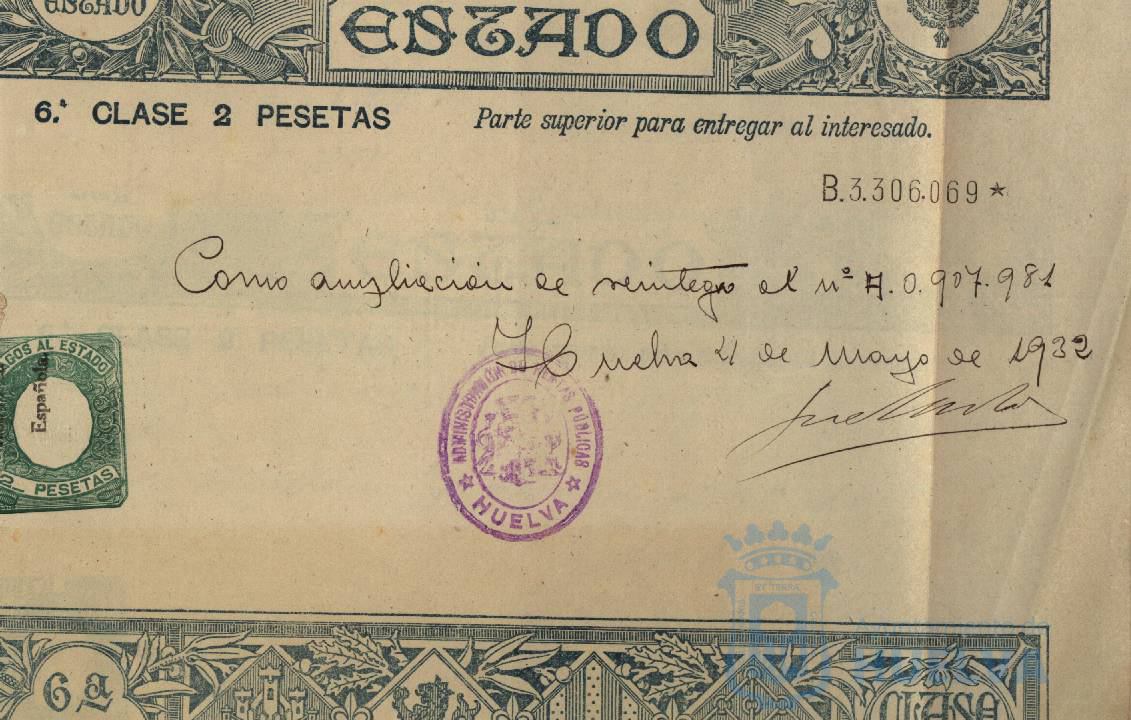 ESTADO
ESTADO
6.ª CLASE 2 PESETAS Parte superior para entregar al interesado.
B.3.306.069 *
Como ampliación de reintegro al nº A.0.907.981
Huelva 21 de Mayo de 1932
PAGOS AL ESTADO
Española.
2 PESETAS
ADMINISTRACIÓN DE RENTAS PÚBLICAS
HUELVA
6ª
CLASE
HUELVA